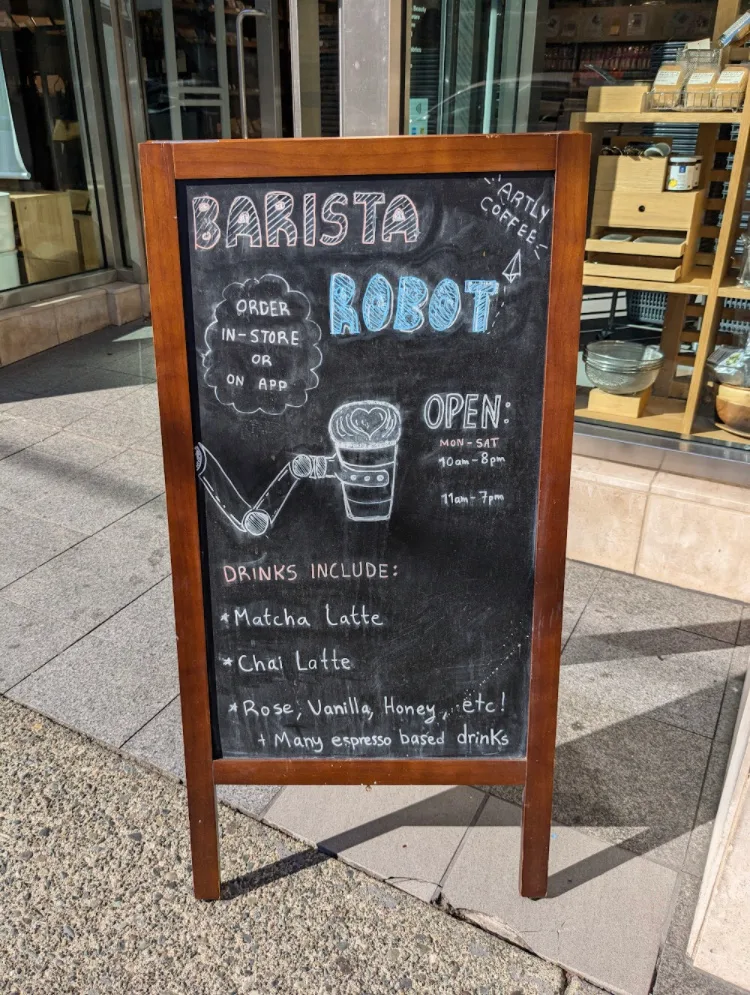 BARISTA
ROBOT
ARTLY
COFFEE
ORDER
IN-STORE
OR
ON APP
OPEN:
MON-SAT
10am-8pm
11am-7pm
DRINKS INCLUDE:
*Matcha Latte
*Chai Latte
*Rose, Vanilla, Honey, etc!
+ Many espresso based drinks